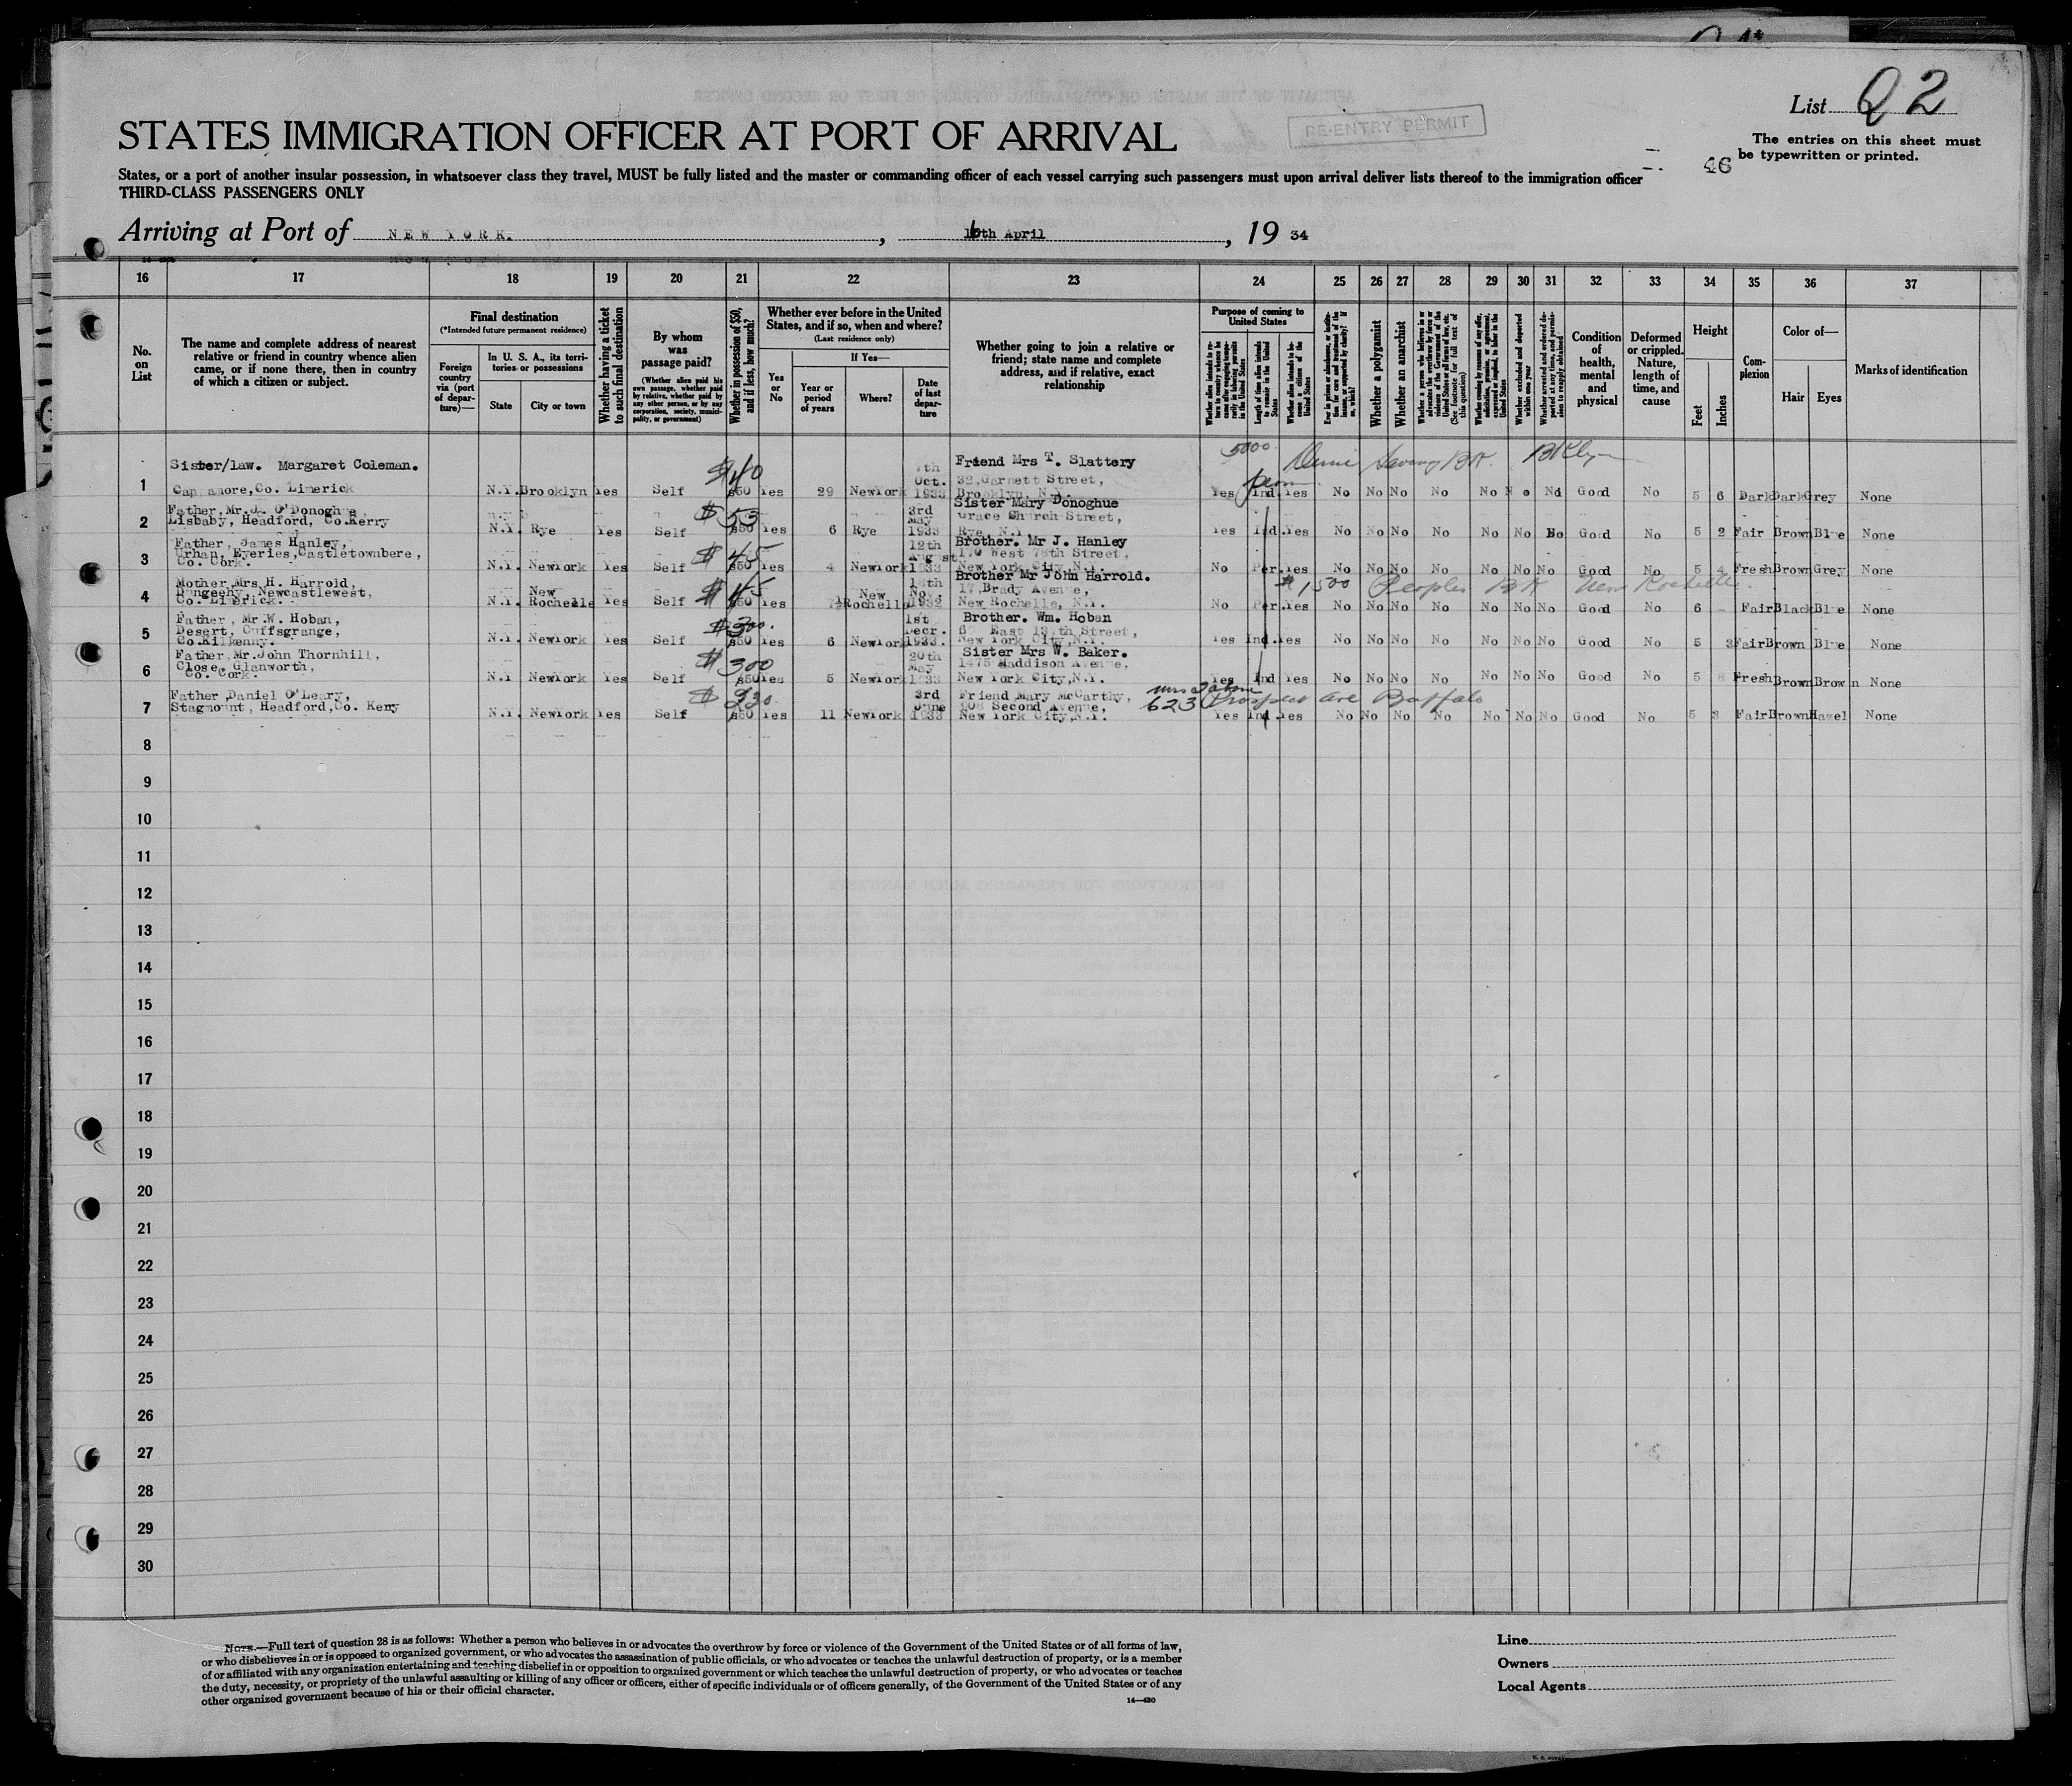 List Q 2
STATES IMMIGRATION OFFICER AT PORT OF ARRIVAL
RE-ENTRY PERMIT
The entries on this sheet must
be typewritten or printed.
46
States, or a port of another insular possession, in whatsoever class they travel, MUST be fully listed and the master or commanding officer of each vessel carrying such passengers must upon arrival deliver lists thereof to the immigration officer
THIRD-CLASS PASSENGERS ONLY
Arriving at Port of NEW YORK. , 16th April , 19 34
16 17 18 19 20 21 22 23 24 25 26 27 28 29 30 31 32 33 34 35 36 37
No. on List
The name and complete address of nearest relative or friend in country whence alien came, or if none there, then in country of which a citizen or subject.
Final destination
(*Intended future permanent residence)
Foreign country via (port of departure)—
In U. S. A., its territories or possessions
State
City or town
Whether having a ticket to such final destination
By whom was passage paid?
(Whether alien paid his own passage, whether paid by relative, whether paid by any other person, or by any corporation, society, municipality, or government)
Whether in possession of $50, and if less, how much?
Whether ever before in the United States, and if so, when and where?
(Last residence only)
Yes or No
If Yes—
Year or period of years
Where?
Date of last departure
Whether going to join a relative or friend; state name and complete address, and if relative, exact relationship
Purpose of coming to United States
Whether alien intends to return to country whence he came after engaging temporarily in laboring pursuits in the United States
Length of time alien intends to remain in the United States
Whether alien intends to become a citizen of the United States
Ever in prison or almshouse, or institution for care and treatment of the insane, or supported by charity? If so, which?
Whether a polygamist
Whether an anarchist
Whether a person who believes in or advocates the overthrow by force or violence of the Government of the United States or all forms of law, etc. (See footnote for full text of this question)
Whether coming by reasons of any offer, solicitation, promise, or agreement, expressed or implied, to labor in the United States
Whether excluded and deported within one year
Whether arrested and ordered deported at any time, and permission to reapply obtained
Condition of health, mental and physical
Deformed or crippled. Nature, length of time, and cause
Height
Feet
Inches
Complexion
Color of—
Hair
Eyes
Marks of identification
5000 Dime Savings BK. BKlyn
1 Sister/law. Margaret Coleman. $40 7th Oct. Friend Mrs T. Slattery
32, Garnett Street, perm
Co. Limerick N.Y. Brooklyn Yes Self $50 Yes 29 NewYork 1933 Brooklyn, N.Y. Yes Ind. Yes No No No No No No No Good No 5 6 Dark Dark Grey None
2 Father, Mr. J. O'Donoghue, $53 3rd May Sister Mary Donoghue
Lisbaby, Headford, Co. Kerry Grace Church Street,
N.Y. Rye Yes Self $50 Yes 6 Rye 1933 Rye, N.Y. Yes Ind. Yes No No No No No No No Good No 5 2 Fair Brown Blue None
3 Father, James Hanley, $45 12th August Brother. Mr J. Hanley
Urhan, Eyeries, Castletownbere, 170 West 78th Street,
Co. Cork. N.Y. NewYork Yes Self $50 Yes 4 NewYork 1933 New York City, N.Y. No Per. Yes No No No No No No No Good No 5 4 Fresh Brown Grey None
$1,500 Peoples BK New Rochelle.
4 Mother, Mrs. H. Harrold, $45 Nov. Brother Mr John Harrold.
Dungeehy, Newcastlewest, 17, Brady Avenue,
Co. Limerick. N.Y. New Rochelle Yes Self $50 Yes New Rochelle 1932 New Rochelle, N.Y. No Per. Yes No No No No No No No Good No 6 - Fair Black Blue None
5 Father, Mr. W. Hoban, $300. 1st Decr. Brother. Wm. Hoban
Desert, Cuffsgrange, East 137th Street,
Co. Kilkenny. N.Y. NewYork Yes Self $50 Yes 6 NewYork 1933. New York City, N.Y. Yes Ind. Yes No No No No No No No Good No 5 Fair Brown Blue None
6 Father, Mr. John Thornhill, $300 20th May Sister Mrs W. Baker.
Close, Glanworth, 1475 Maddison Avenue,
Co. Cork. N.Y. NewYork Yes Self $50 Yes 5 NewYork 1933 New York City, N.Y. Yes Ind Yes No No No No No No No Good No 5 8 Fresh Brown Brown None
623 Prospect ave Buffalo
7 Father, Daniel O'Leary, $220 3rd June Friend Mary McCarthy,
Stagmount, Headford, Co. Kerry 908 Second Avenue,
N.Y. NewYork Yes Self $50 Yes 11 NewYork 1933 New York City, N.Y. Yes Ind. Yes No No No No No No No Good No 5 3 Fair Brown Hazel None
8
9
10
11
12
13
14
15
16
17
18
19
20
21
22
23
24
25
26
27
28
29
30
NOTE.—Full text of question 28 is as follows: Whether a person who believes in or advocates the overthrow by force or violence of the Government of the United States or of all forms of law,
or who disbelieves in or is opposed to organized government, or who advocates the assassination of public officials, or who advocates or teaches the unlawful destruction of property, or is a member
of or affiliated with any organization entertaining and teaching disbelief in or opposition to organized government or which teaches the unlawful destruction of property, or who advocates or teaches
the duty, necessity, or propriety of the unlawful assaulting or killing of any officer or officers, either of specific individuals or of officers generally, of the Government of the United States or of any
other organized government because of his or their official character.
14—430
Line
Owners
Local Agents